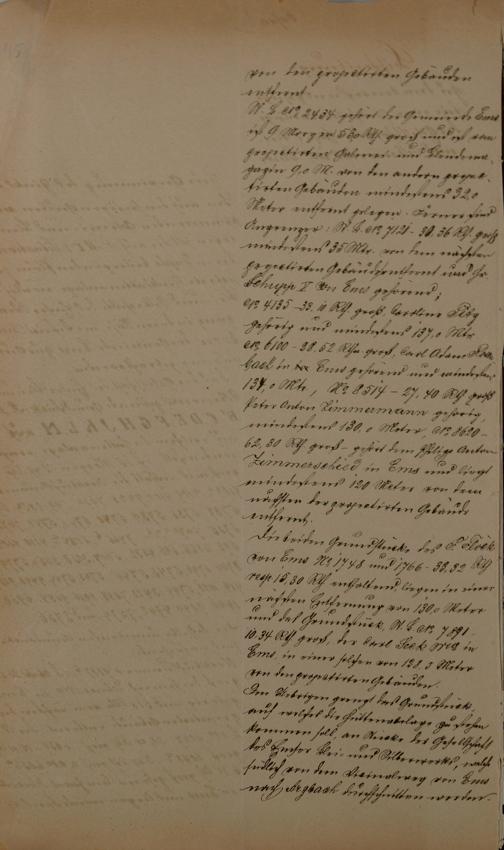 von den projectirten Gebäuden
entfernt.
St. B. № 2434 gehört der Gemeinde Ems
ist 9 Morgen 560 Rth. groß und ist vom
projectirten Galerei- und Blendema-
gazin 9,0 M. von den andern projec-
tirten Gebäuden mindestens 32,0
Meter entfernt gelegen. Ferner sind
Angrenzer: St. B. № 7121 - 30.36 Rth. groß
mindestens 35 Mtr. von dem nächsten
projectirten Gebäude entfernt und Hr.
Schupp II von Ems gehörend;
№ 4135 - 33,10 Rth. groß, Caroline
gehörig und mindestens 137,0 Mtr.
№ 6100 - 28.52 Rth. groß, Carl Adam
bach in Ems gehörend und mindestens
134,0 Mtr., № 8514 - 27.40 Rth. groß
Peter Anton Zimmermann gehörig,
mindestens 130,0 Meter, № 8620 -
62,30 Rth. groß - gehört dem Anton
Zimmerschied in Ems und liegt
mindestens 120 Meter von dem
nächsten der projectirten Gebäude
entfernt.
Die beiden Grundstücke des F. Flöck
von Ems № 1748 und 1766 - 33,32 Rth.
resp. 15,30 Rth. enthaltend, liegen in einer
nächsten Entfernung von 130,0 Meter
und das Grundstück, St. B. № 7891
10.34 Rth. groß, der Carl in
Ems, in einer solchen von 128,0 Meter
von den projectirten Gebäuden.
Im Uebrigen grenzt das Grundstück,
auf welches die Hüttenanlage zu stehen
kommen soll, an Stücke der Gesellschaft
des Emser Blei- und Silberwerks, welche
südlich von dem Vicinalweg von Ems
nach Arzbach durchschnitten werden.